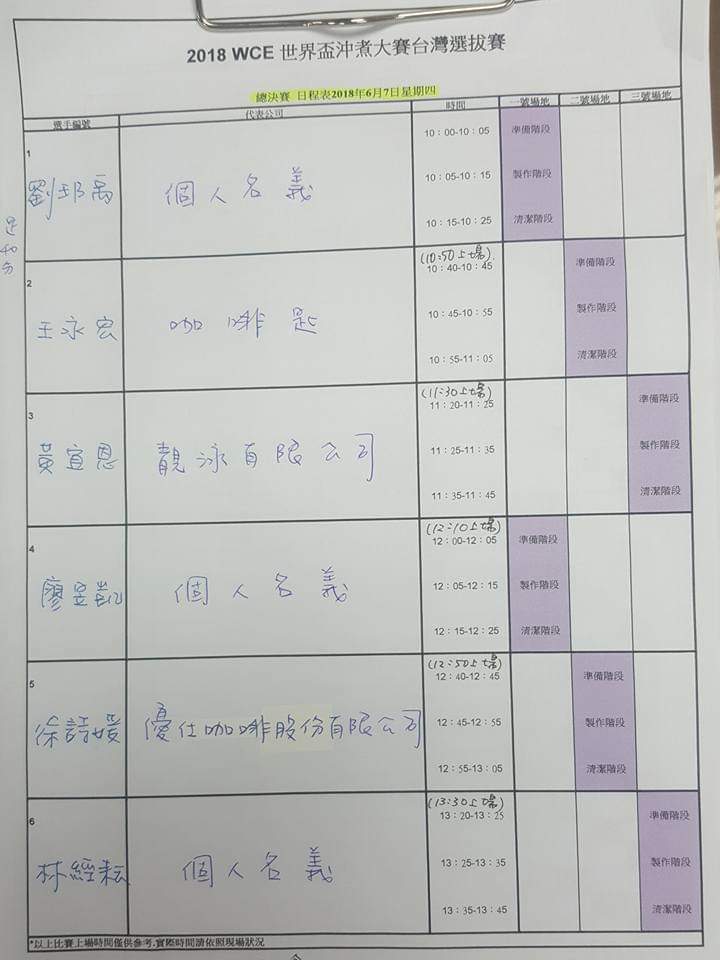 2018 WCE 世界盃沖煮大賽台灣選拔賽
總決賽 日程表2018年6月7日星期四
選手編號 代表公司 時間 一號場地 二號場地 三號場地
1
劉邦禹 個人名義
10：00-10：05 準備階段
10：05-10：15 製作階段
10：15-10：25 清潔階段
2
王永宏 咖啡匙
(10:50上場)
10：40-10：45 準備階段
10：45-10：55 製作階段
10：55-11：05 清潔階段
3
黃宣恩 靚泳有限公司
(11:30上場)
11：20-11：25 準備階段
11：25-11：35 製作階段
11：35-11：45 清潔階段
4
廖昱凱 個人名義
(12:10上場)
12：00-12：05 準備階段
12：05-12：15 製作階段
12：15-12：25 清潔階段
5
徐詩媛 優仕咖啡股份有限公司
(12:50上場)
12：40-12：45 準備階段
12：45-12：55 製作階段
12：55-13：05 清潔階段
6
林經耘 個人名義
(13:30上場)
13：20-13：25 準備階段
13：25-13：35 製作階段
13：35-13：45 清潔階段
*以上比賽上場時間僅供參考,實際時間請依照現場狀況
40分